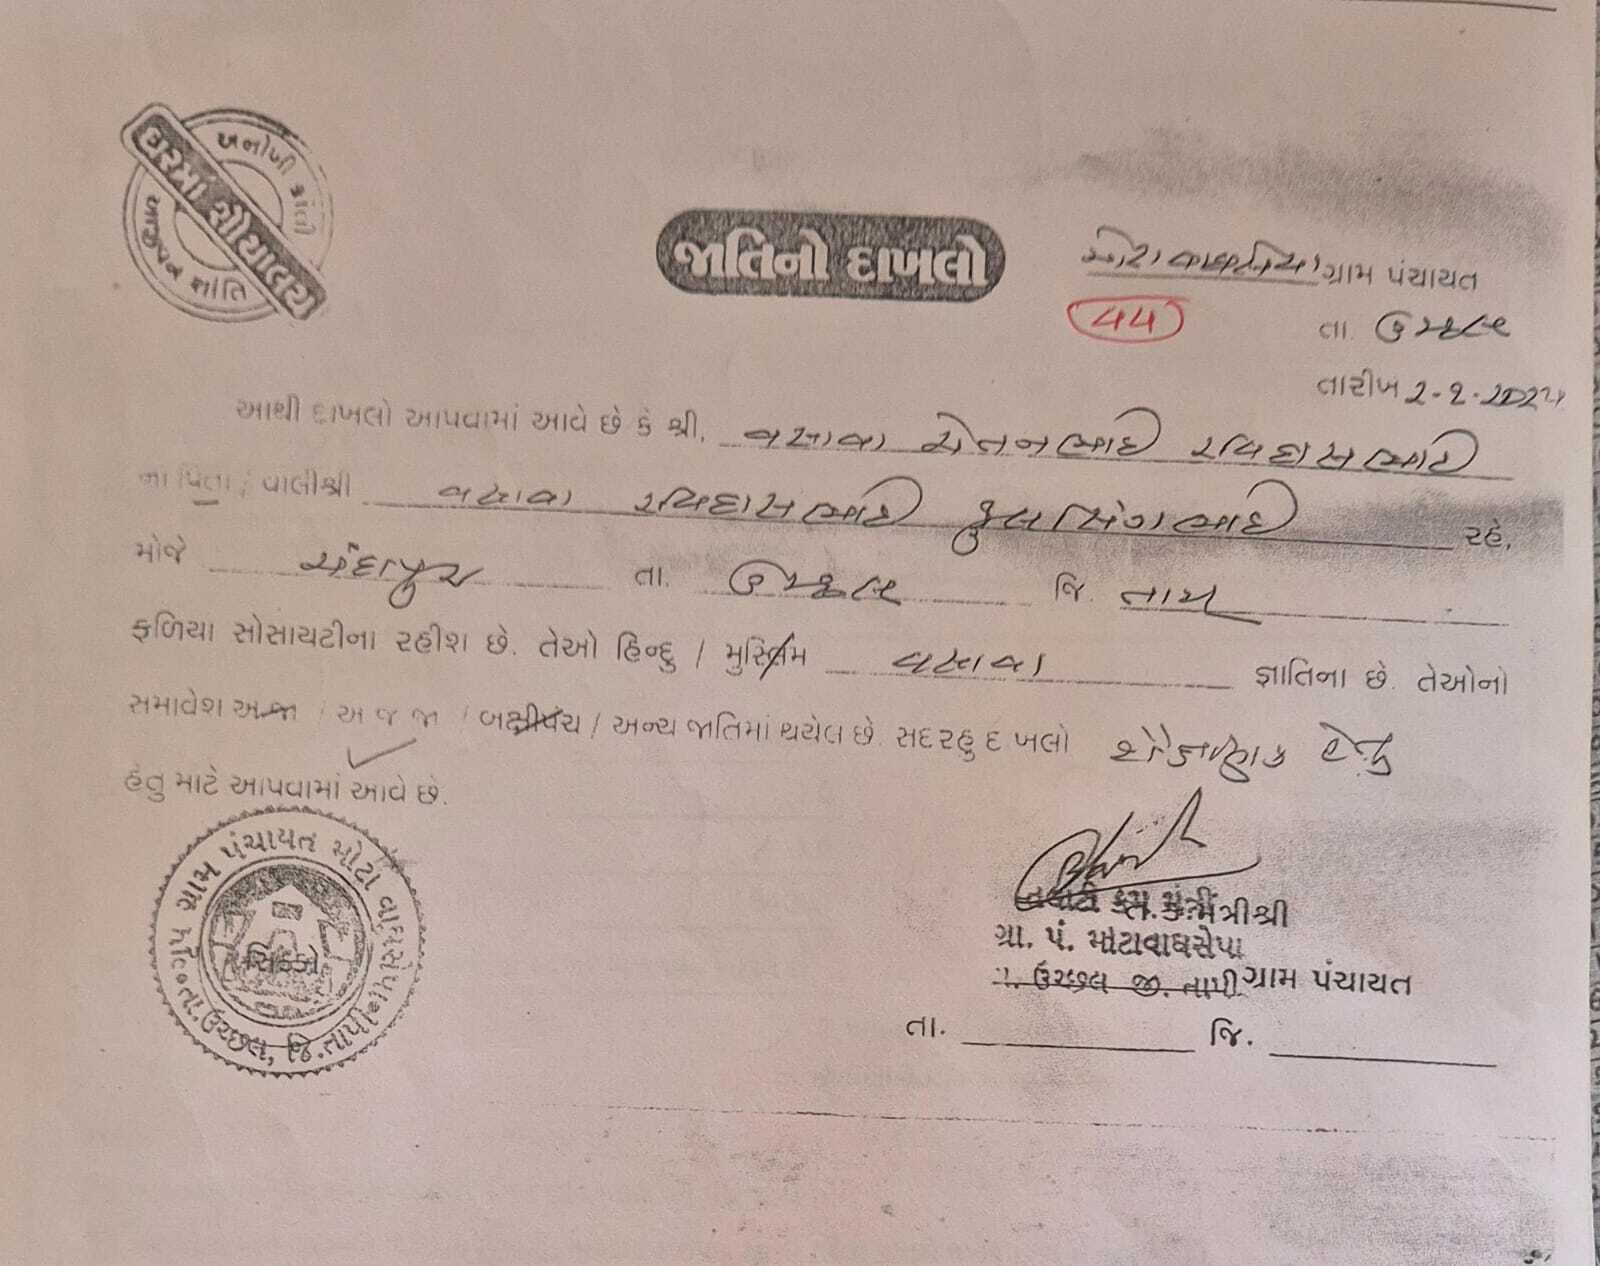 અનોખી ક્રાંતી
ઘરમાં શૌચાલય
આજીવન શાંતિ
જાતિનો દાખલો
ગ્રામ પંચાયત
૫૫
તા. ઉચ્છલ
તારીખ ૨-૧-૨૦૨૫
આથી દાખલો આપવામાં આવે છે કે શ્રી. વસાવા ચેતનભાઈ રવિદાસભાઈ
ના પિતા / વાલીશ્રી વસાવા રવિદાસભાઈ ફુલસિંગભાઈ રહે.
મોજે ચંદાપુર તા. ઉચ્છલ જિ. તાપી
ફળિયા સોસાયટીના રહીશ છે. તેઓ હિન્દુ / મુસ્લિમ વસાવા જ્ઞાતિના છે. તેઓનો
સમાવેશ અ.જા / અ જ જા / બક્ષીપંચ / અન્ય જાતિમાં થયેલ છે. સદરહુ દાખલો શૈક્ષણિક હેતુ
હેતુ માટે આપવામાં આવે છે.
ગ્રામ પંચાયત મોટા વાઘસેપા
પો. તા.ઉચ્છલ, જિ.તાપી
સિક્કો
તલાટી કમ મંત્રી
ત.ક.મંત્રીશ્રી
ગ્રા. પં. મોટાવાઘસેપા
તા. ઉચ્છલ જી. તાપી ગ્રામ પંચાયત
તા. જિ.